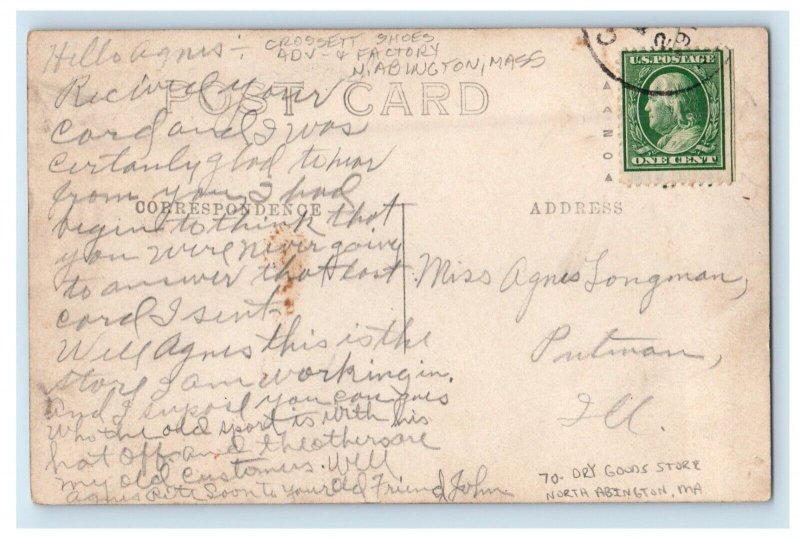 Hello Agnes :-
CROSSETT SHOES
ADV - & FACTORY
N. ABINGTON, MASS
POST CARD
U.S. POSTAGE
ONE CENT
AZO
Recived your
card and I was
certanly glad to hear
from you I had
begin to think that
you were never going
to answer that last
card I sent.
Well Agnes this is the
store I am working in.
And I supose you can gues
who the old sport is with his
hat off and the others are
my old customers. Well
Agnes Rite Soon to your Old Friend John
CORRESPONDENCE
ADDRESS
Miss Agnes Longman,
Putman,
Ill.
70- DRY GOODS STORE
NORTH ABINGTON, MA